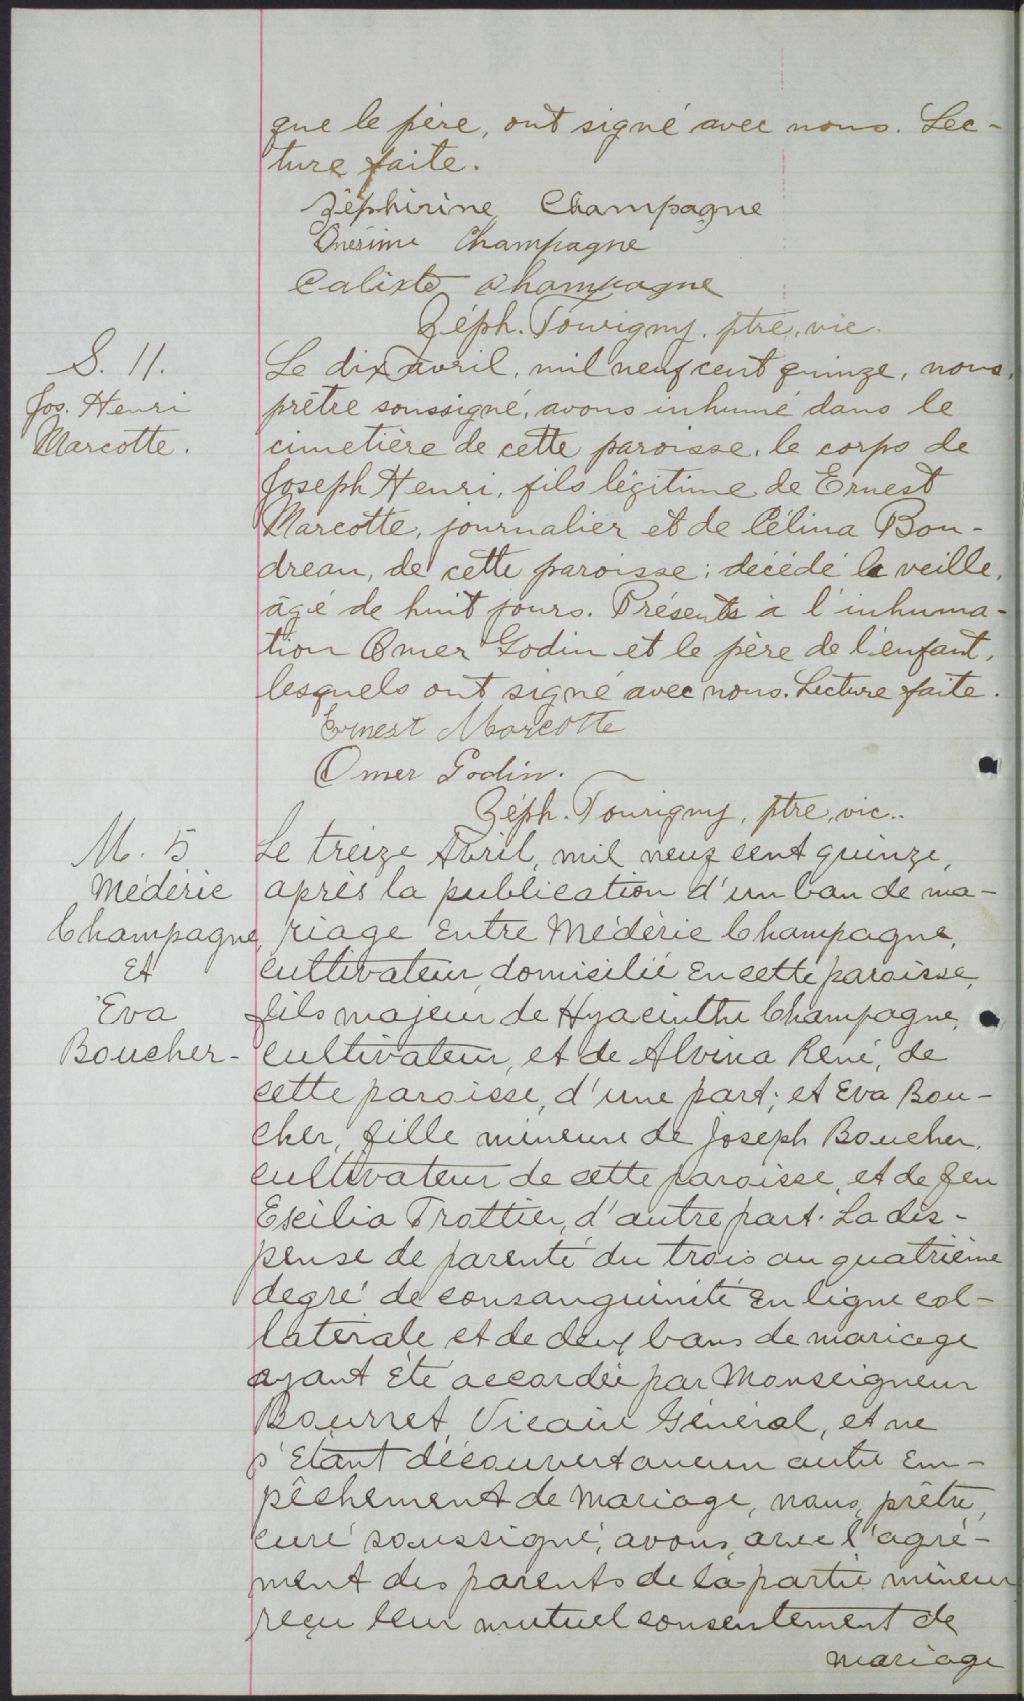 que le père, ont signé avec nous. Lec-
ture faite.
Zéphirine Champagne
Onésime Champagne
Calixte Champagne
Zéph. Tourigny, ptre, vic.
S. 11.
Jos. Henri
Marcotte.
Le dix avril, mil neuf cent quinze, nous,
prêtre soussigné, avons inhumé dans le
cimetière de cette paroisse, le corps de
Joseph Henri, fils légitime de Ernest
Marcotte, journalier et de Célina Bou-
dreau, de cette paroisse; décédé la veille,
âgé de huit jours. Présents à l'inhuma-
tion Omer Godin et le père de l'enfant,
lesquels ont signé avec nous. Lecture faite.
Ernest Marcotte
Omer Godin.
Zéph. Tourigny, ptre, vic..
M. 5
Médéric
Champagne,
et
Eva
Boucher-
Le treize Avril, mil neuf cent quinze,
après la publication d'un ban de ma-
riage entre Médéric Champagne,
cultivateur, domicilié en cette paroisse,
fils majeur de Hyacinthe Champagne,
cultivateur, et de Alvina René, de
cette paroisse, d'une part; et Eva Bou-
cher, fille mineure de Joseph Boucher,
cultivateur de cette paroisse, et de feu
Exilia Trottier, d'autre part. La dis-
pense de parenté du trois au quatrième
degré de consanguinité en ligne col-
latérale et de deux bans de mariage
ayant été accordée par Monseigneur
Bourret, Vicaire Général, et ne
s'étant découvert aucun autre em-
pêchement de mariage, nous, prêtre,
curé soussigné, avons, avec l'agré-
ment des parents de la partie mineure
reçu leur mutuel consentement de
mariage